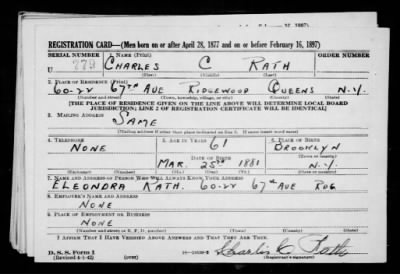 REGISTRATION CARD—(Men born on or after April 28, 1877 and on or before February 16, 1897)
SERIAL NUMBER 1. NAME (Print) ORDER NUMBER
U 779 CHARLES C RATH
(First) (Middle) (Last)
2. PLACE OF RESIDENCE (Print)
60-22 67TH AVE RIDGEWOOD QUEENS N.Y.
(Number and street) (Town, township, village, or city) (County) (State)
[THE PLACE OF RESIDENCE GIVEN ON THE LINE ABOVE WILL DETERMINE LOCAL BOARD
JURISDICTION; LINE 2 OF REGISTRATION CERTIFICATE WILL BE IDENTICAL]
3. MAILING ADDRESS
SAME
[Mailing address if other than place indicated on line 2. If same insert word same]
4. TELEPHONE 5. AGE IN YEARS 6. PLACE OF BIRTH
NONE 61 BROOKLYN
DATE OF BIRTH
MAR. 25TH 1881 N.Y.
(Mo.) (Day) (Yr.)
7. NAME AND ADDRESS OF PERSON WHO WILL ALWAYS KNOW YOUR ADDRESS
ELEONORA RATH. 60-22 67TH AVE RDG
8. EMPLOYER'S NAME AND ADDRESS
NONE
9. PLACE OF EMPLOYMENT OR BUSINESS
NONE
(Number and street or R. F. D. number) (Town) (County) (State)
I AFFIRM THAT I HAVE VERIFIED ABOVE ANSWERS AND THAT THEY ARE TRUE.
D. S. S. Form 1
(Revised 4-1-42) (over) Charles C Rath
(Registrant's signature)